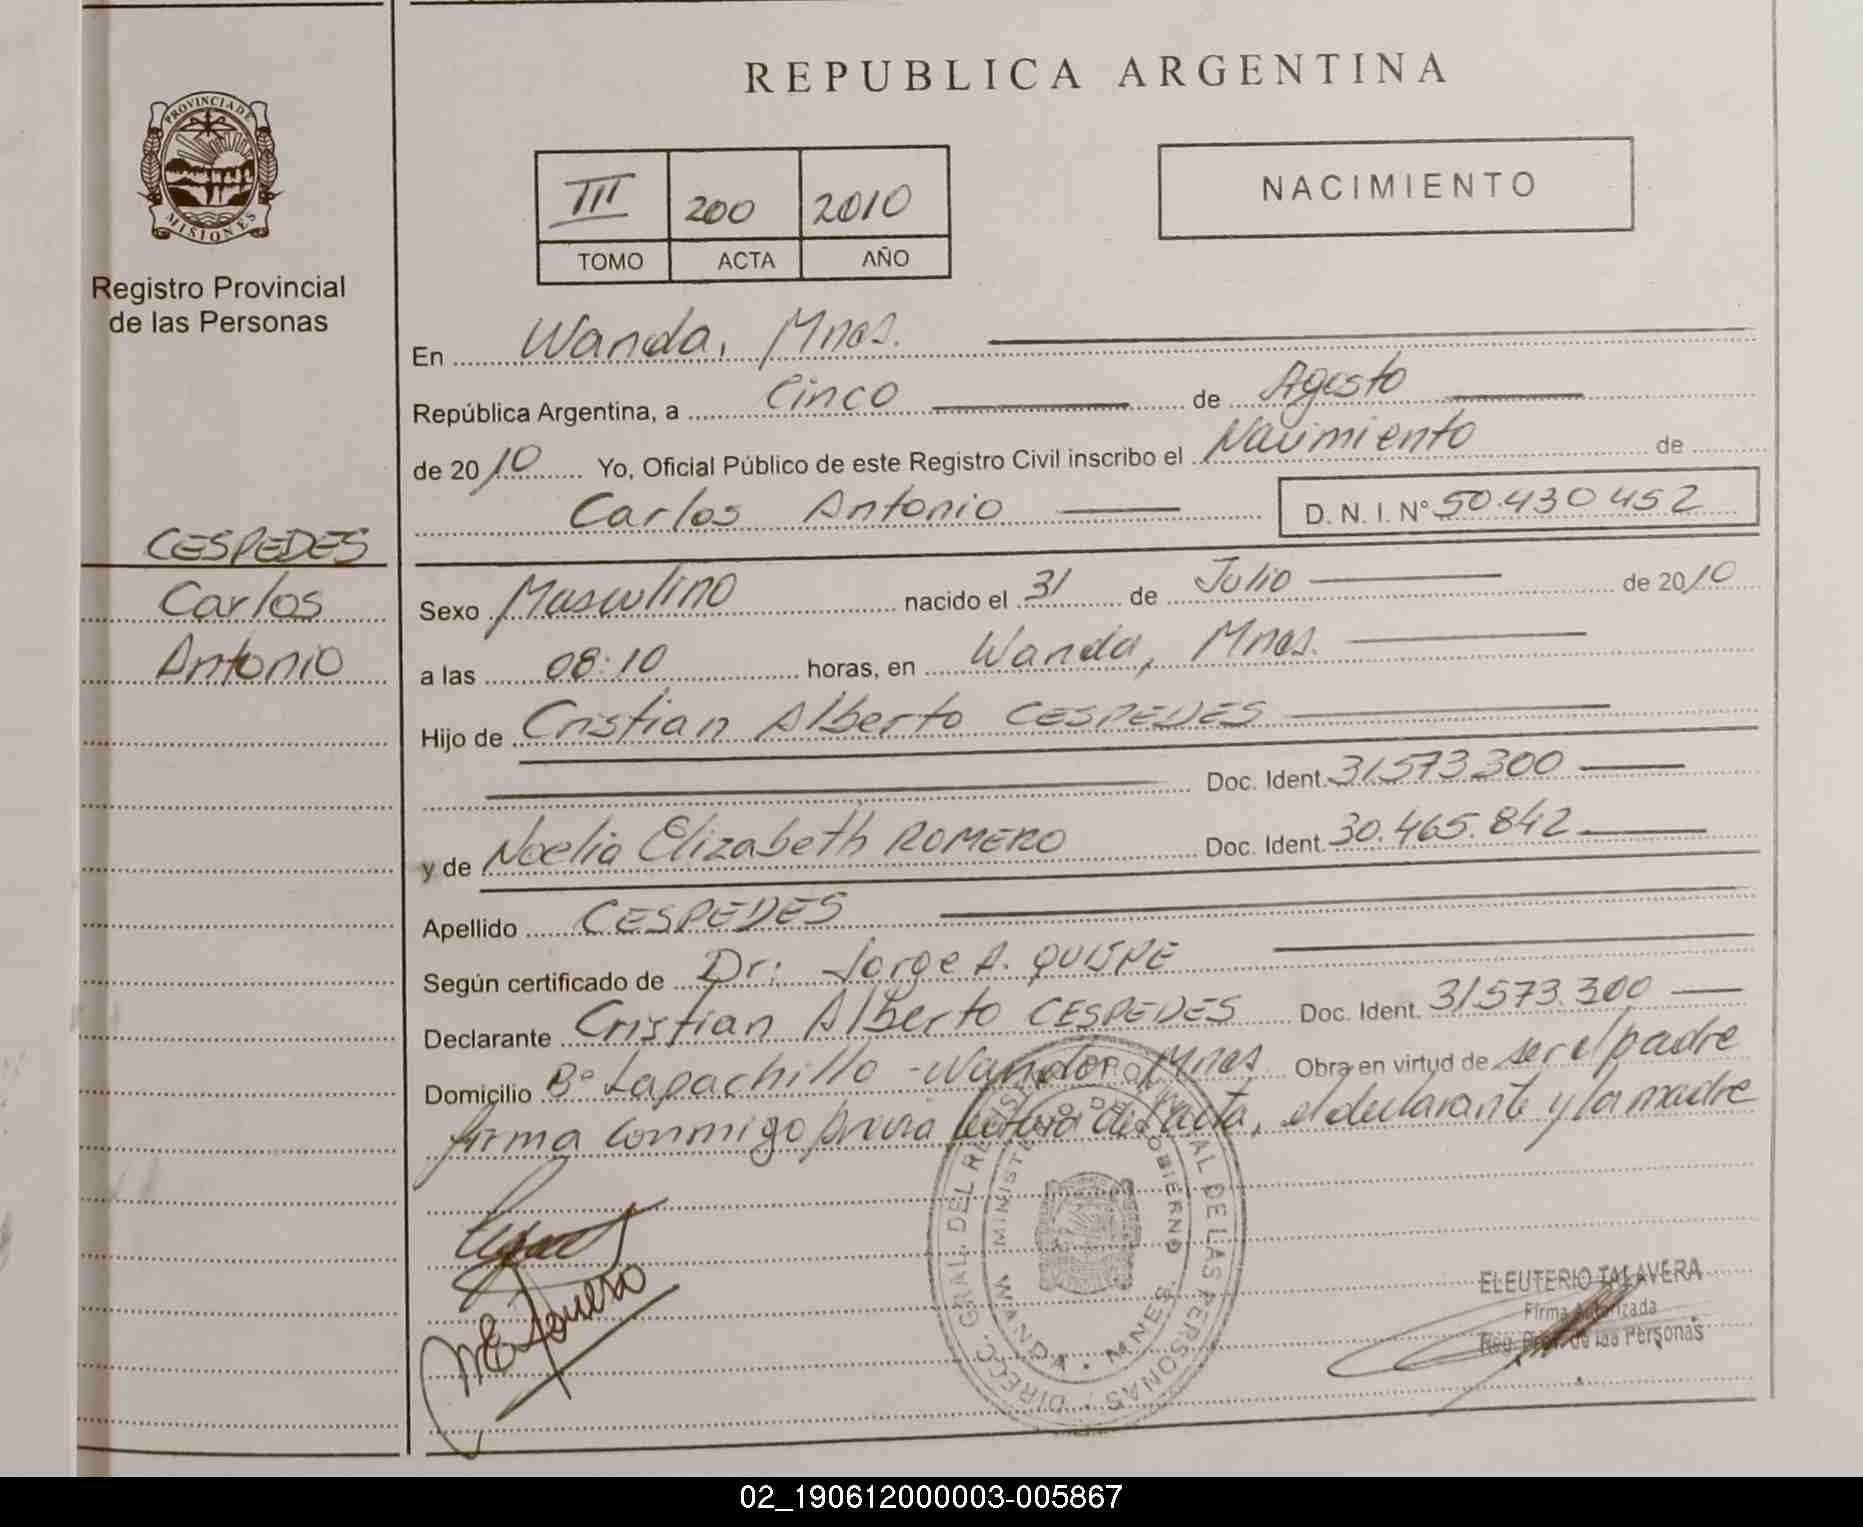 REPUBLICA ARGENTINA
PROVINCIA DE
MISIONES
Registro Provincial
de las Personas
III 200 2010
TOMO ACTA AÑO
NACIMIENTO
En Wanda, Mnes.
República Argentina, a Cinco de Agosto
de 2010 Yo, Oficial Público de este Registro Civil inscribo el Nacimiento de
Carlos Antonio D. N. I. Nº 50.430.452
CESPEDES
Carlos
Antonio
Sexo Masculino nacido el 31 de Julio de 2010
a las 08:10 horas, en Wanda, Mnes.
Hijo de Cristian Alberto CESPEDES
Doc. Ident. 31.573.300
y de Noelia Elizabeth ROMERO Doc. Ident. 30.465.842
Apellido CESPEDES
Según certificado de Dr: Jorge A. QUISPE
Declarante Cristian Alberto CESPEDES Doc. Ident. 31.573.300
Domicilio Bº Lapachillo - Wanda Mnes Obra en virtud de ser el padre
firma conmigo previa lectura del acta, el declarante y la madre
DIRECC. GRAL. DEL REGISTRO PROVINCIAL DE LAS PERSONAS
MINISTERIO DE GOBIERNO
WANDA - MNES.
ELEUTERIO TALAVERA
Firma Autorizada
Reg. Prov. de las Personas
02_190612000003-005867